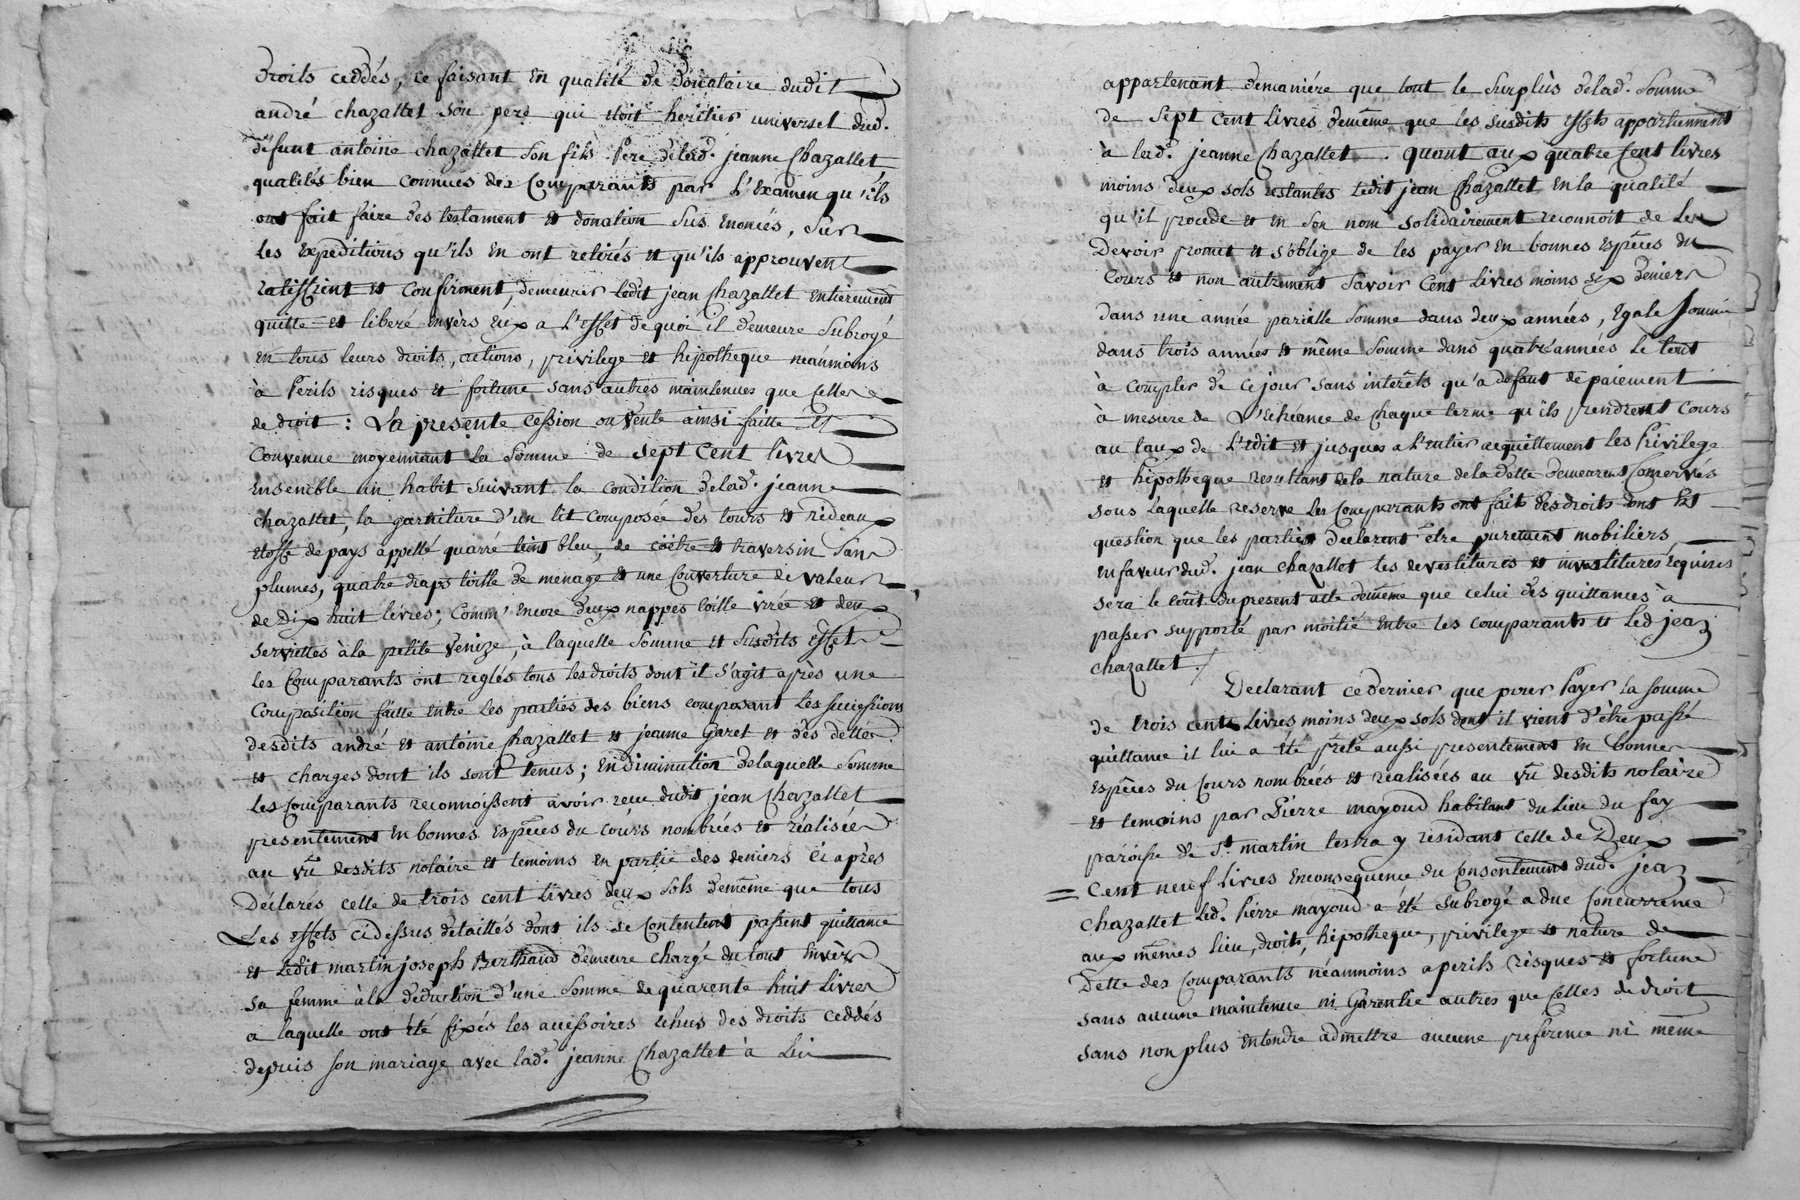 Droits ceddés, ce faisant en qualité de donataire dudit
andré chazallet son pere qui etoit heritier universel dud.
defunt antoine chazallet son fils Pere delad. jeanne Chazallet
qualités bien connues des Comparants par L'Examen qu'ils
ont fait faire des testament et donation sus enoncés, sur
les Expeditions qu'ils en ont retirés et qu'ils approuvent
ratiffient et Confirment, demeurer ledit jean Chazallet Entierement
quitte et liberé envèrs eux a L'effet dequoi il demeure subrogé
en tous leurs droits, actions, privilege et hipotheque neaûmoins
à Perils risques et fortune sans autres maintenues que Celles
de droit : La presente cession ou vente ainsi faitte et
Convenue moyennant la somme de sept Cent livres
ensemble un habit suivant la condition delad. jeanne
chazallet, la garniture d'un lit composée des tours et rideaux
etoffe de pays appellé quarré teint bleu, de coëtre et traversin sans
plumes, quatre draps toille de menage et une Couverture de valeur
de dix huit livres; Comm' encore deux nappes toille irée et deux
serviettes à la petite venize, à laquelle somme et susdits effets
les Comparants ont reglés tous les droits dont il s'agit après une
Composition faitte entre les parties des biens composant les successions
desdits andré et antoine Chazallet et jeanne Garet et dès dettes
et charges dont ils sont tenus; en diminution delaquelle somme
les Comparants reconnoissent avoir reçu dudit jean Chazallet
presentement en bonnes espèces du cours nombrées et réalisées
au vû desdits notaire et temoins en partie des deniers ci après
Déclarés celle de trois cent livres deux sols demême que tous
Les effets ci dessus detaillés dont ils se Contentent passent quittance
et ledit martin joseph Berthaud demeure chargé du tout Envèrs
sa femme à la déduction d'une somme de quarente huit livres
a laquelle ont été fixés les accessoires echus des droits ceddés
depuis son mariage avec lad. jeanne Chazallet à Lui
appartenant demaniére que tout le surplùs delad. somme
de sept cent Livres demême que les susdits effets appartiennent
à lad. jeanne Chazallet. Quant aux quatre Cent livres
moins deux sols restantes ledit jean Chazallet en la qualité
qu'il procede et en son nom solidairement reconnoit de les
Devoir promet et s'oblige de les payer en bonnes Espèces du
Cours et non autrement savoir Cent livres moins six deniers
dans une année pareille somme dans deux années, Egale somme
dans trois années et même somme dans quatre années le tout
à compter de ce jour sans interêts qu'a defaut de paiement
à mesure de L'echéance de chaque terme qu'ils prendront Cours
au taux de L'edit et jusques a L'entier acquittement les Privilege
et hipotheque resultant de la nature de la dette demeurent Conservés
sous laquelle reserve les Comparants ont fait des droits dont Est
question que les parties declarent être purement mobiliers
en faveur dud. jean chazallet les devestitures et investitures requises
sera le coût du present acte demême que celui des quittances à
passer supporté par moitié entre les comparants et led jean
chazallet ./
Declarant ce dernier que pour Payer la somme
de trois cent Livres moins deux sols dont il vient d'être passé
quittance il lui a été prêté aussi presentement en bonnes
espèces du Cours nombrées et réalisées au vû desdits notaire
et temoins par Pierre mayoud habitant du Lieu du fay
paroisse de St. martin lestra y residant celle de Deux
= Cent neuf livres en consequence du Consentement dud. jean
chazallet Led. Pierre mayoud a été subrogé a due Concurrence
aux mêmes lieu, droits, hipotheque, privilege et nature de
Dette des Comparants néanmoins a perils risques et fortune
sans aucune maintenue ni Garentie autres que Celles de droit
sans non plus entendre admettre aucune preference ni même